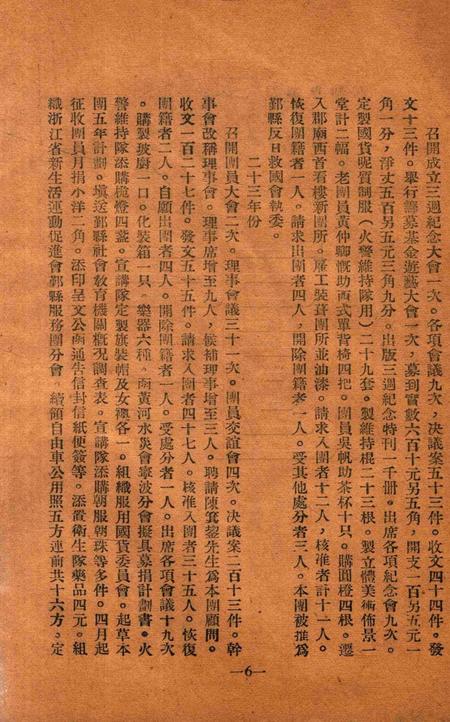 召開成立三週紀念大會一次。各項會議九次，决議案五十三件。收文四十四件。發
文十三件。舉行籌募基金遊藝大會一次，募到實數六百十元另五角，開支一百另五元一
角一分，淨丈五百另五元三角九分。出版三週紀念特刊一千冊。出席各項紀念會九次。
定製國貨呢質制服（火警維持隊用）二十九套。製維持棍二十三根。製立體美術佈景一
堂計二幅。老團員黃仲聊慨助西式單背椅四把。團員吳帆助茶杯十只。購圓櫈四根。遷
入郡廟西首看樓新團所。雇工裝葺團所並油漆。請求入團者十二人，核准者計十一人。
恢復團籍者一人。請求出團者四人，開除團籍者一人。受其他處分者三人。本團被推爲
鄞縣反日救國會執委。
二十三年份
召開團員大會二次。理事會議三十一次。團員交誼會四次。决議案二百十三件。幹
事會改稱理事會。理事席增至九人，候補理事增至三人。聘請陳蓂鋆先生爲本團顧問。
收文一百二十七件。發文五十五件。請求入團者四十七人。核准入團者三十五人。恢復
團籍者二人。自願出團者四人。開除團籍者一人。受處分者一人。出席各項會議十九次
。購製玻廚一口。化裝箱一只，樂器六種。函黃河水災會寧波分會擬具募捐計劃書。火
警維持隊添購桅燈四盞。宣講隊定製旗裝帽及女襖各一。組織服用國貨委員會。起草本
團五年計劃。塡送鄞縣社會教育機關概况調查表。宣講隊添購朝服朝珠等多件。四月起
征收團員月捐小洋二角。添印呈文公函通告信封信紙便簽等。添置衛生隊藥品四元。組
織浙江省新生活運動促進會鄞縣服務團分會。續領自由車公用照五方連前共十六方，定
—6—